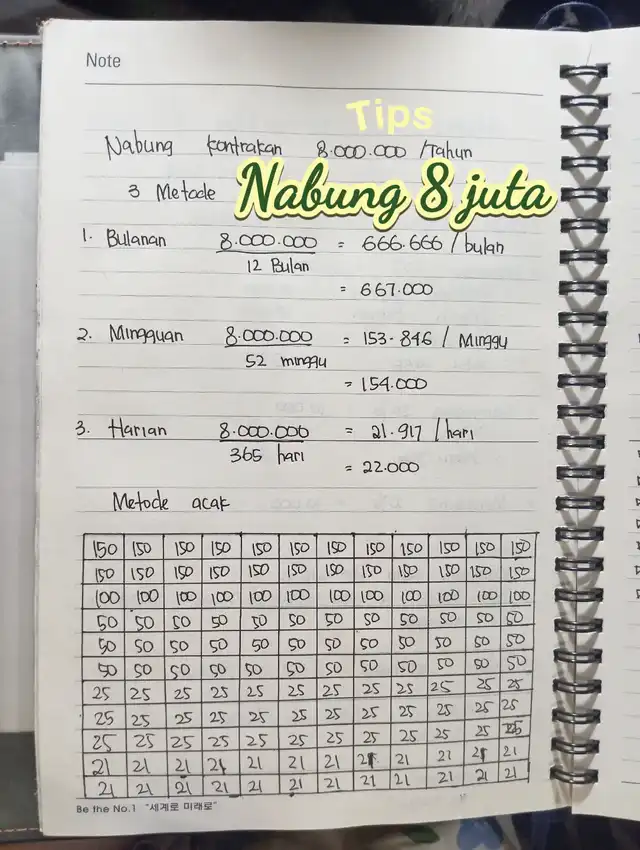 Note
Tips
Nabung kontrakan 8.000.000 /Tahun
3 Metode
Nabung 8 juta
1. Bulanan 8.000.000 = 666.666 / bulan
12 Bulan
= 667.000
2. Mingguan 8.000.000 = 153.846 / Minggu
52 minggu
= 154.000
3. Harian 8.000.000 = 21.917 / hari
365 hari
= 22.000
Metode acak
150 150 150 150 150 150 150 150 150 150 150 150
150 150 150 150 150 150 150 150 150 150 150 150
100 100 100 100 100 100 100 100 100 100 100 100
50 50 50 50 50 50 50 50 50 50 50 50
50 50 50 50 50 50 50 50 50 50 50 50
50 50 50 50 50 50 50 50 50 50 50 50
25 25 25 25 25 25 25 25 25 25 25 25
25 25 25 25 25 25 25 25 25 25 25 25
25 25 25 25 25 25 25 25 25 25 25 25
21 21 21 21 21 21 21 21 21 21 21 21
21 21 21 21 21 21 21 21 21 21 21 21
Be the No.1 "세계로 미래로"